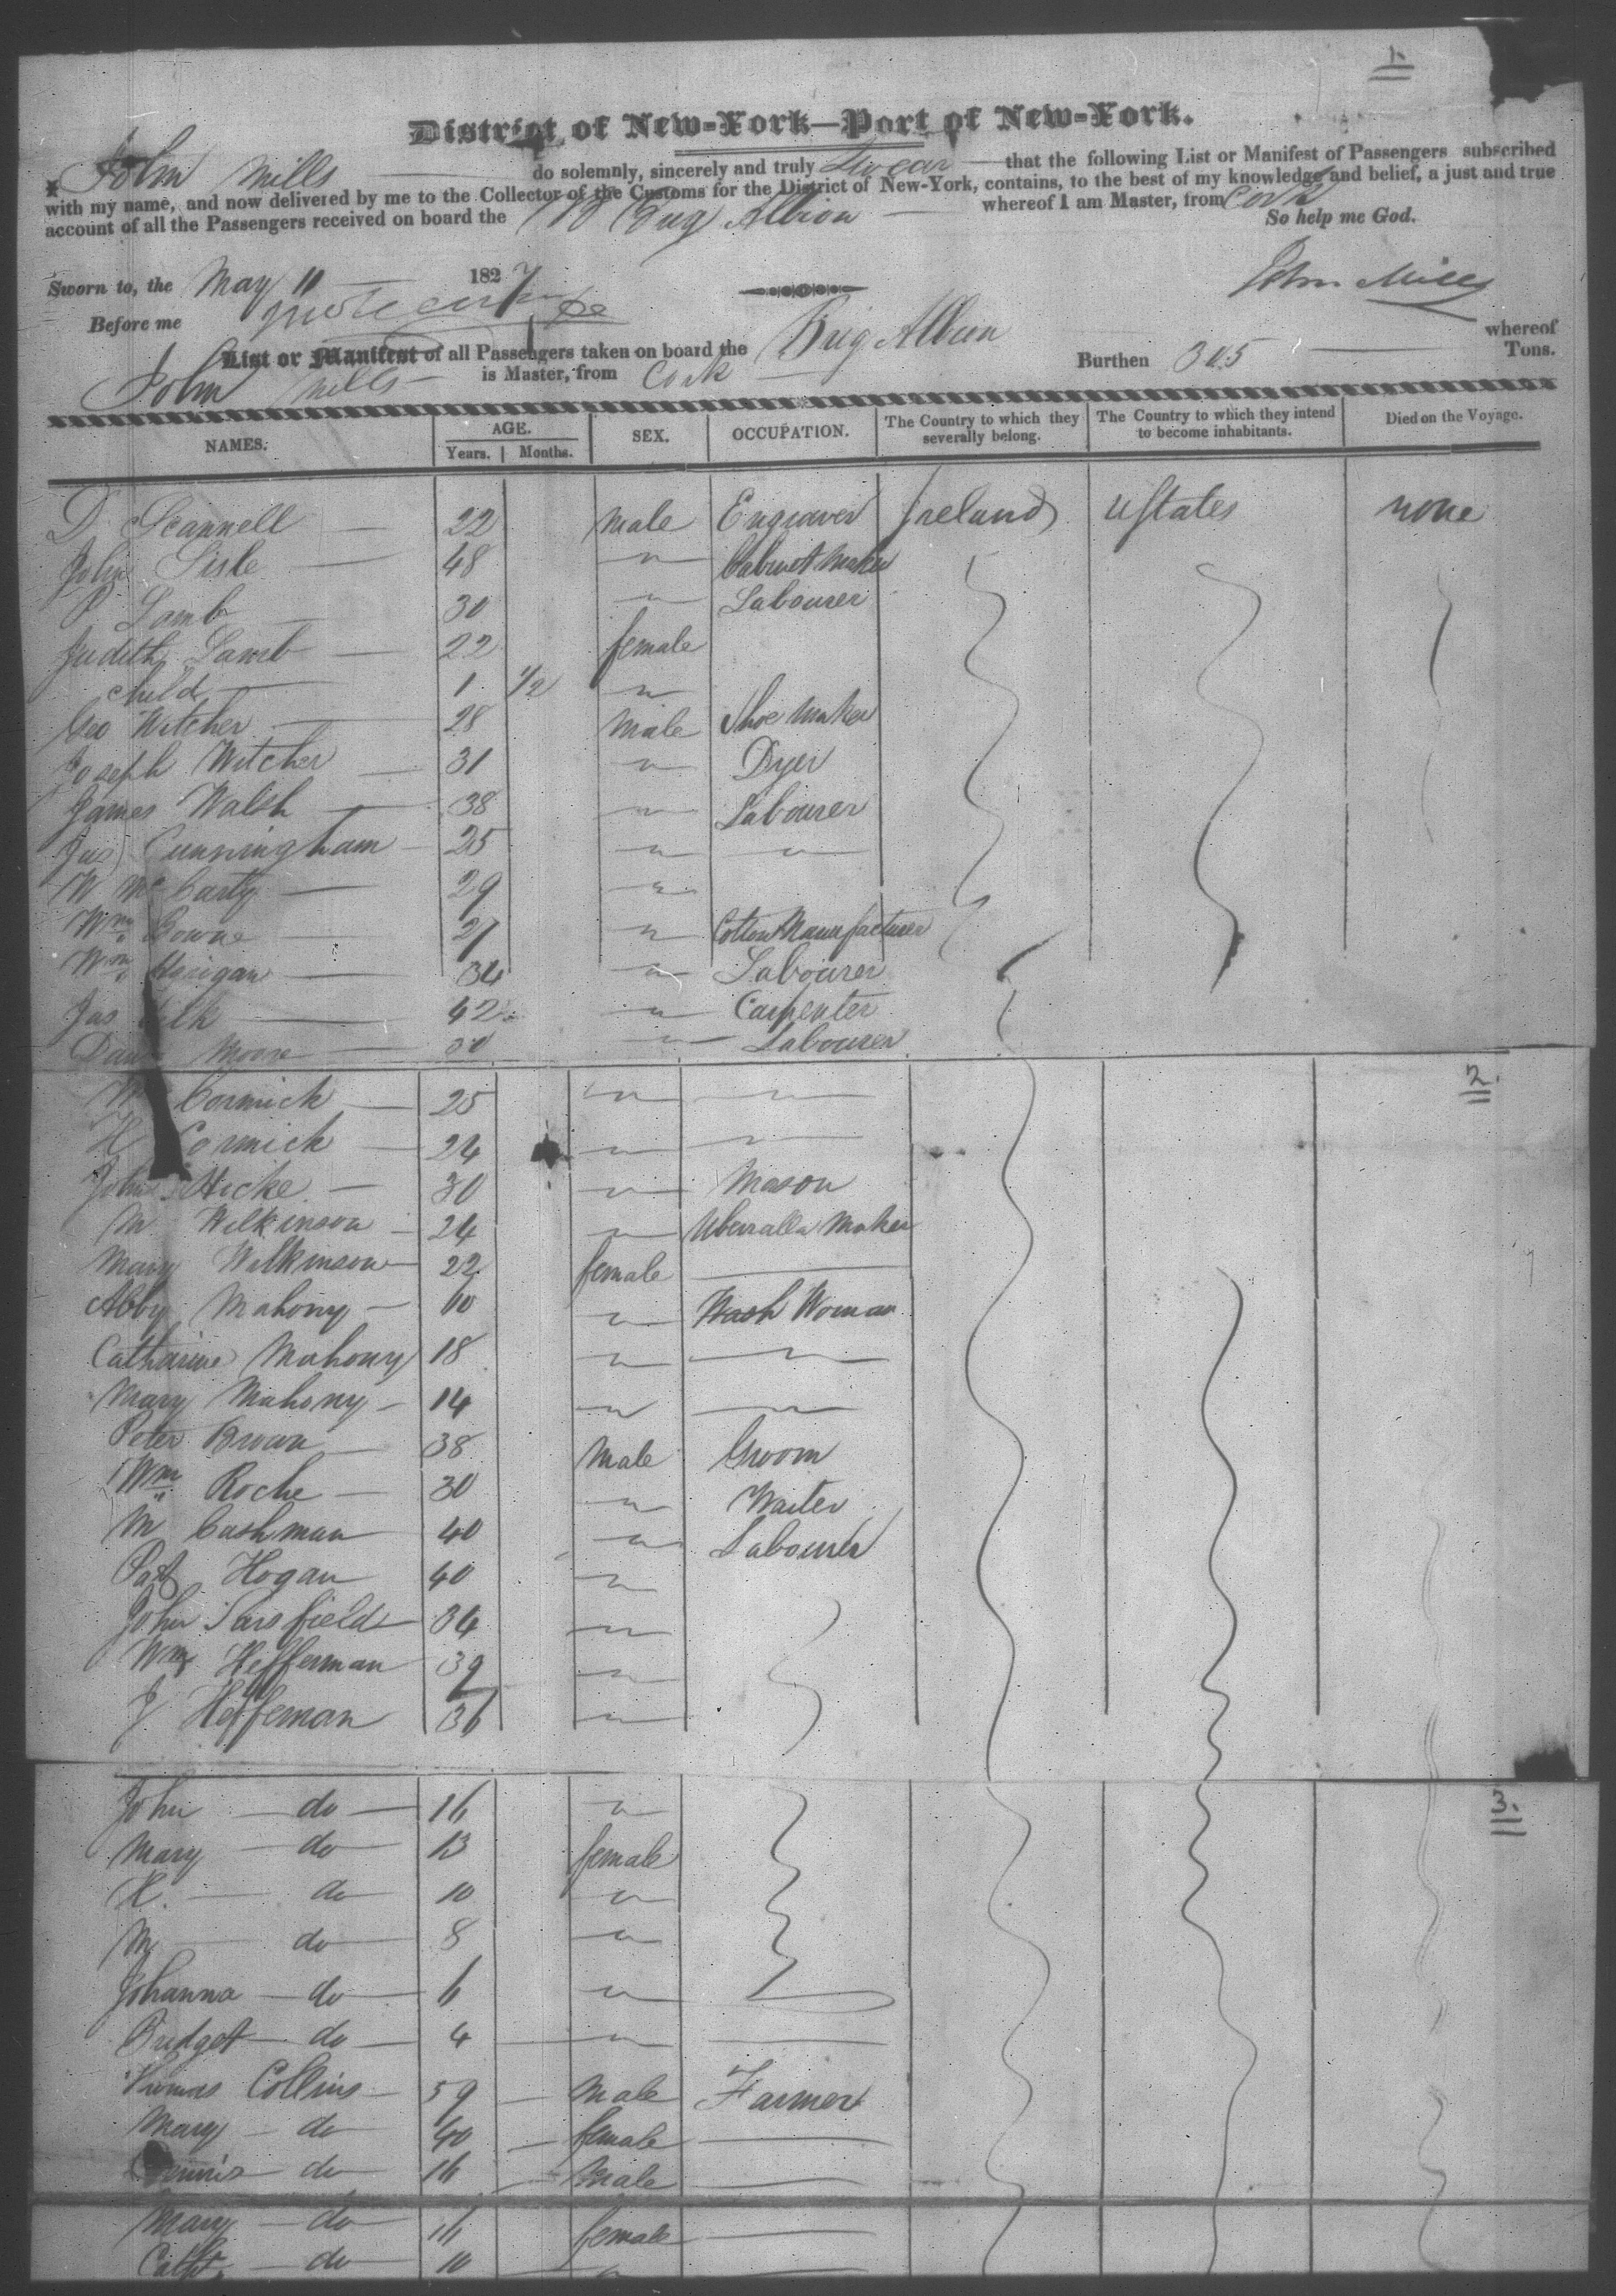 1.
District of New-York—Port of New-York.
John Mills do solemnly, sincerely and truly Swear that the following List or Manifest of Passengers subscribed
with my name, and now delivered by me to the Collector of the Customs for the District of New-York, contains, to the best of my knowledge and belief, a just and true
account of all the Passengers received on board the Brig Albion whereof I am Master, from Cork
So help me God.
Sworn to, the May 11 1827
John Mills
Before me
List or Manifest of all Passengers taken on board the Brig Albion whereof
John Mills is Master, from Cork Burthen 305 Tons.
NAMES. AGE. Years. Months. SEX. OCCUPATION. The Country to which they severally belong. The Country to which they intend to become inhabitants. Died on the Voyage.
D Scannell 22 male Engraver Ireland UStates none
John Lisle 48 " Cabinet Maker
P Lamb 30 " Labourer
Judith Lamb 22 female
child 1 1/2 "
Geo Witcher 28 Male Shoe Maker
Joseph Witcher 31 " Dyer
James Walsh 38 " Labourer
Jas Cunningham 25 " "
W McCarty 29 "
Wm 27 " Cotton Manufacturer
Wm 34 " Labourer
Jas 42 " Carpenter
Moore 30 " Labourer
2.
Cormick 25 " "
H Cormick 24 " "
John Hicke 30 " Mason
M Wilkinson 24 " Maker
Mary Wilkinson 22 female
Abby Mahony 60 " Wash Woman
Catharine Mahony 18 " "
Mary Mahony 14 " "
Peter Brown 38 Male Groom
Wm Roche 30 " Waiter
M Cashman 40 " Labourer
Pat Hogan 40 "
John Sarsfield 34 "
Wm Heffernan 39 "
J Heffernan 36 "
3.
John do 16 "
Mary do 13 female
H. do 10 "
M do 8 "
Johanna do 6 "
Bridget do 4 "
Thomas Collins 59 Male Farmer
Mary do 40 female
Dennis do 16 Male
Mary do 16 female
Cath do 10 "